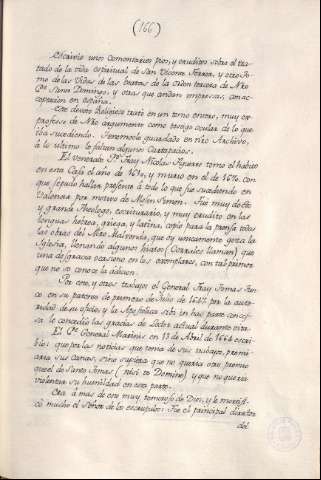 (166)
Escrivio unos comentarios pios, y eruditos sobre el tra-
tado de la vida espiritual de San Vicente Ferrer, y otro to-
mo de las Vidas de las beatas de la orden tercera de Nro
Pe. Santo Domingo, y otras que andan impresas, con ac-
ceptacion en españa.
Este devoto Religioso trató en un tomo entero, muy ex
profesto de Nro argumento como testigo ocular de lo que
iba sucediendo. Tenemosle guardado en nro Archivo,
á lo ultimo le faltan algunos Cartapacios.
El Venerable Pe. Fray Nicolas Figueres tomo el habito
en esta Casa el año de 1614, y murió en el de 1670. con
que se pudo hallar presente á todo lo que fue sucediendo en
Valencia por motivo de Mosen Simon. Fue muy docto
y grande Theologo, escriturario, y muy erudito en las
lenguas hebrea, griega, y latina, copió para la prensa todas
las obras del Mtro Malvenda, que oy unicamente goza la
Iglesia, llenando algunos hiatos (Corrales llaman) que
una desgracia ocasiono en los exemplares, con tal primor
que no se conoce la adicion.
Por este, y otros trabajos el General Fray Tomas Tur-
co en su patente de primero de Julio de 1647. por la auto-
ridad de su oficio, y la Apostolica sibi in hac parte conces-
sa le concedió las gracias de Lector actual durante vita.
El Rmo. General Marinis en 13 de Abril de 1664 escri-
bió: que por las noticias que tenia de sus trabajos, premi-
aria sus Canas, sino supiera que no queria otro premio
que el de Santo Tomas (nisi te Domine) y que no queria
violentar su humildad en esta parte.
Era á mas de esto muy temeroso de Dios, y le mortifi-
có mucho el Señor de los escrupulos: Fue el principal director
del